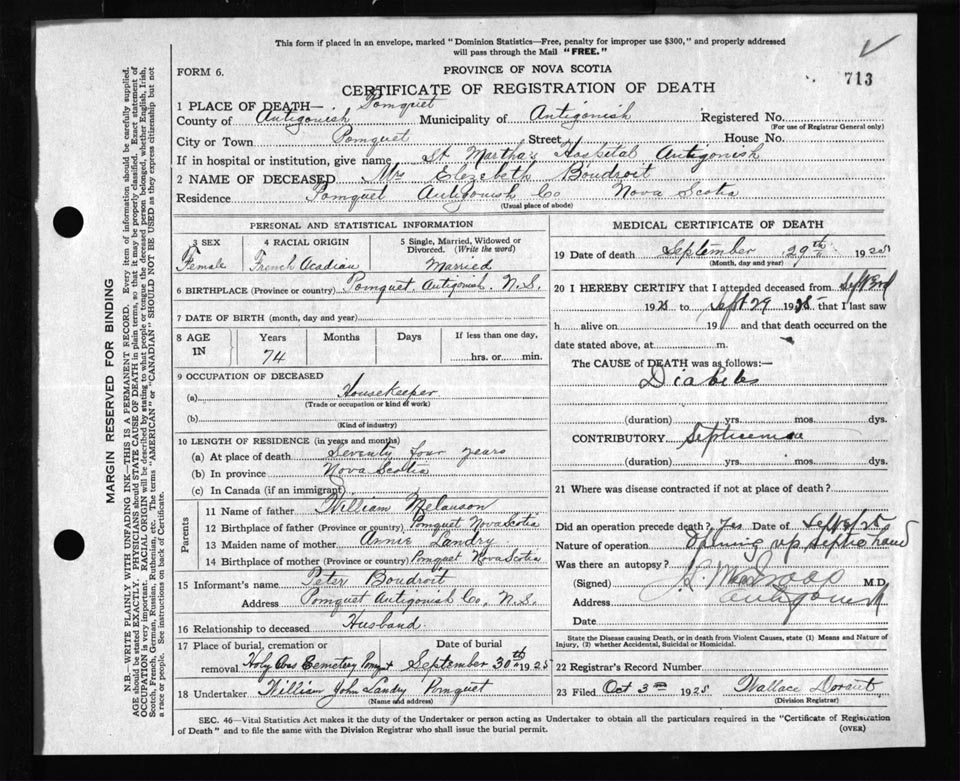 This form if placed in an envelope, marked "Dominion Statistics—Free, penalty for improper use $300," and properly addressed
will pass through the Mail "FREE."
FORM 6.
PROVINCE OF NOVA SCOTIA
713
CERTIFICATE OF REGISTRATION OF DEATH
1 PLACE OF DEATH— Pomquet
County of Antigonish Municipality of Antigonish Registered No.
(For use of Registrar General only)
City or Town Pomquet Street House No.
If in hospital or institution, give name St Martha's Hospital Antigonish
2 NAME OF DECEASED Mrs Elezebeth Boudroit
Residence Pomquet Antigonish Co Nova Scotia
(Usual place of abode)
PERSONAL AND STATISTICAL INFORMATION
3 SEX 4 RACIAL ORIGIN 5 Single, Married, Widowed or Divorced. (Write the word)
Female French Acadian Married
6 BIRTHPLACE (Province or country) Pomquet. Antigonish. N.S.
7 DATE OF BIRTH (month, day and year)
8 AGE IN Years Months Days If less than one day,
74 hrs. or min.
9 OCCUPATION OF DECEASED
(a) Housekeeper
(Trade or occupation or kind of work)
(b)
(Kind of industry)
10 LENGTH OF RESIDENCE (in years and months)
(a) At place of death Seventy four years
(b) In province Nova Scotia
(c) In Canada (if an immigrant)
Parents
11 Name of father William Melanson
12 Birthplace of father (Province or country) Pomquet Nova Scotia
13 Maiden name of mother Annie Landry
14 Birthplace of mother (Province or country) Pomquet Nova Scotia
15 Informant's name Peter Boudroit
Address Pomquet Antigonish Co, N.S.
16 Relationship to deceased Husband
17 Place of burial, cremation or Date of burial
removal Holy Cros Cemetery Pomquet September 30th 1925
18 Undertaker William John Landry Pomquet
(Name and address)
MEDICAL CERTIFICATE OF DEATH
19 Date of death September 29th 1925
(Month, day and year)
20 I HEREBY CERTIFY that I attended deceased from Sept 3rd
1925 to Sept 29 1925 that I last saw
h alive on 19 and that death occurred on the
date stated above, at m.
The CAUSE of DEATH was as follows:—
Diabetes
(duration) yrs. mos. dys.
CONTRIBUTORY Septicemia
(duration) yrs. mos. dys.
21 Where was disease contracted if not at place of death?
Did an operation precede death? Yes Date of Sept 3/25
Nature of operation Opening up septic hand
Was there an autopsy?
(Signed) M.D.
Address Antigonish
Date
State the Disease causing Death, or in death from Violent Causes, state (1) Means and Nature of
Injury, (2) whether Accidental, Suicidal or Homicidal.
22 Registrar's Record Number
23 Filed Oct 3rd 1925 Wallace
(Division Registrar)
SEC. 46—Vital Statistics Act makes it the duty of the Undertaker or person acting as Undertaker to obtain all the particulars required in the "Certificate of Registration
of Death" and to file the same with the Division Registrar who shall issue the burial permit.
(OVER)
MARGIN RESERVED FOR BINDING
N.B.—WRITE PLAINLY WITH UNFADING INK—THIS IS A PERMANENT RECORD. Every item of information should be carefully supplied.
AGE should be stated EXACTLY. PHYSICIANS should STATE CAUSE OF DEATH in plain terms, so that it may be properly classified. Exact statement of
OCCUPATION is very important. RACIAL ORIGIN will be described by stating to what people or tongue the deceased person belonged, whether English, Irish,
Scotch, French, German, Russian, Ruthenian, etc. The terms "AMERICAN" or "CANADIAN" SHOULD NOT BE USED as they express citizenship but not
a race or people. See instructions on back of Certificate.